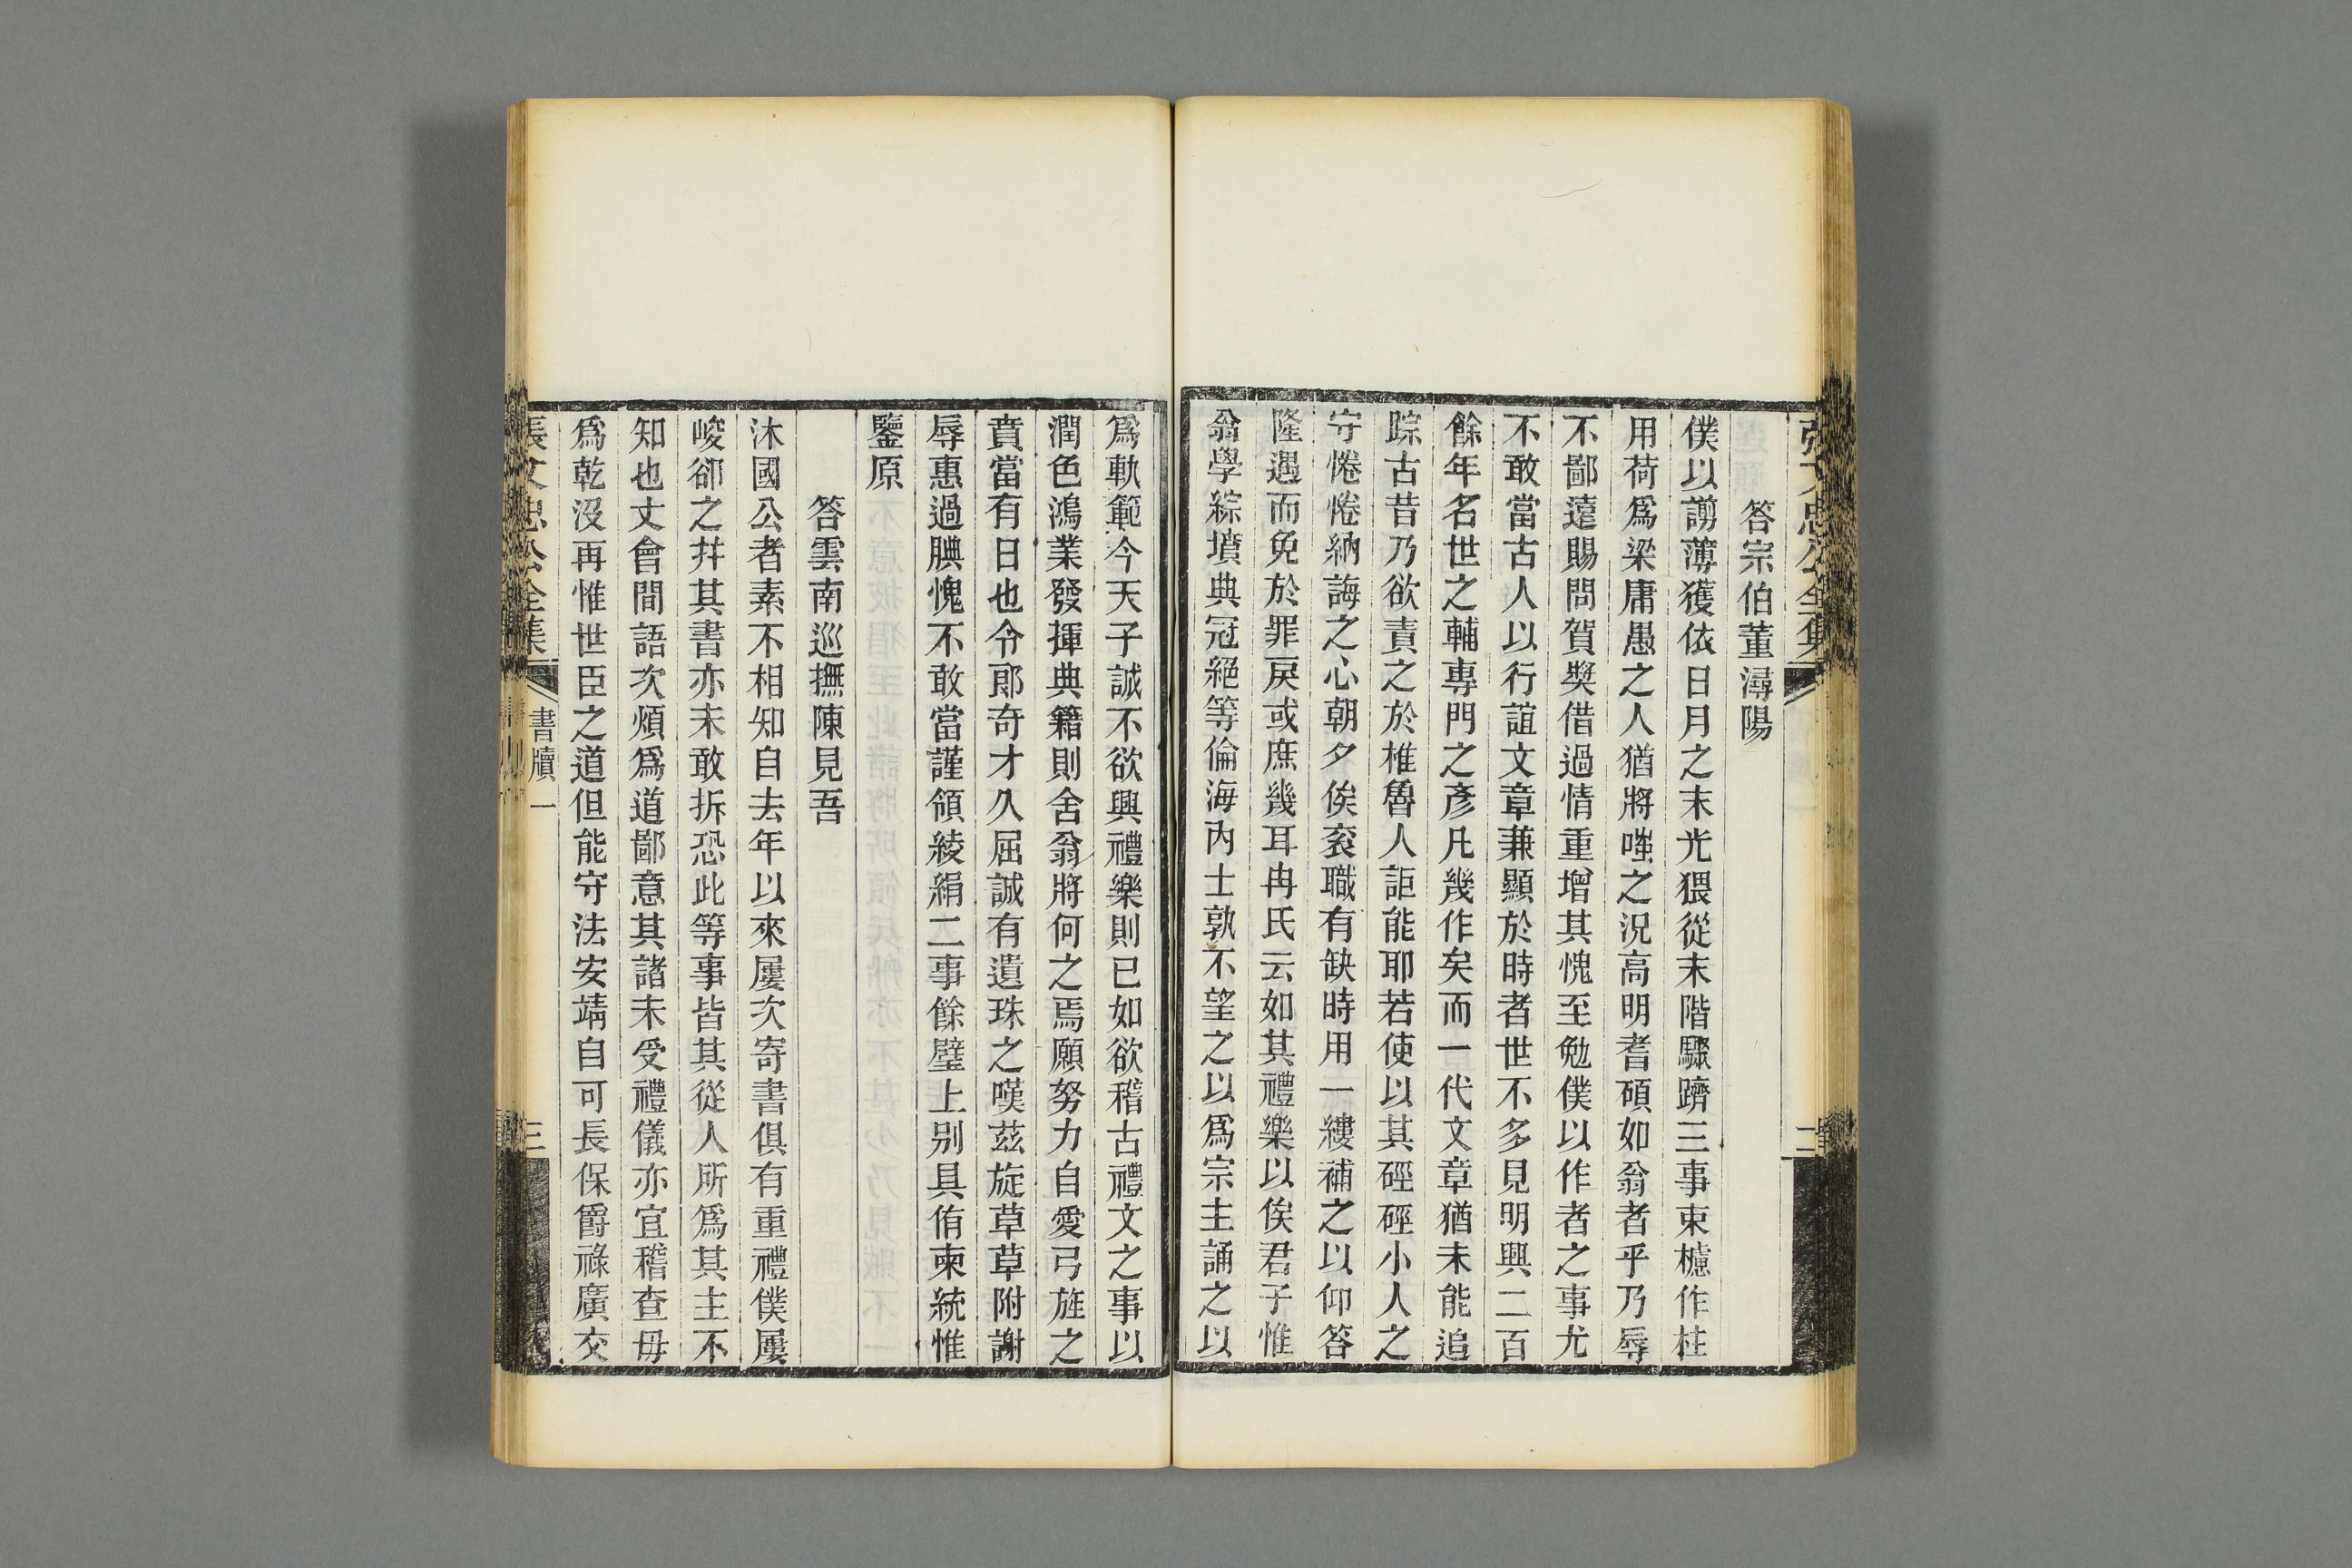 答宗伯董潯陽
僕以譾薄獲依日月之末光猥從末階驟躋三事束櫨作柱
用荷爲梁庸愚之人猶將嗤之況高明耆碩如翁者乎乃辱
不鄙遠賜問賀奬借過情重增其愧至勉僕以作者之事尤
不敢當古人以行誼文章兼顯於時者世不多見明興二百
餘年名世之輔專門之彥凡幾作矣而一代文章猶未能追
踪古昔乃欲責之於椎魯人詎能耶若使以其硜硜小人之
守惓惓納誨之心朝夕俟衮職有缺時用一縷補之以仰答
隆遇而免於罪戾或庶幾耳冉氏云如其禮樂以俟君子惟
翁學綜墳典冠絕等倫海內士孰不望之以爲宗主誦之以
爲軌範今天子誠不欲興禮樂則已如欲稽古禮文之事以
潤色鴻業發揮典籍則舍翁將何之焉願努力自愛弓旌之
賁當有日也令郎奇才久屈誠有遺珠之嘆茲旋草草附謝
辱惠過腆愧不敢當謹領綾絹二事餘璧上别具侑柬統惟
鑒原
答雲南巡撫陳見吾
沐國公者素不相知自去年以來屢次寄書俱有重禮僕屢
峻卻之幷其書亦未敢拆恐此等事皆其從人所爲其主不
知也丈會間語次煩爲道鄙意其諸未受禮儀亦宜稽查毋
爲乾沒再惟世臣之道但能守法安靖自可長保爵祿廣交
張文忠公全集
書牘一
三